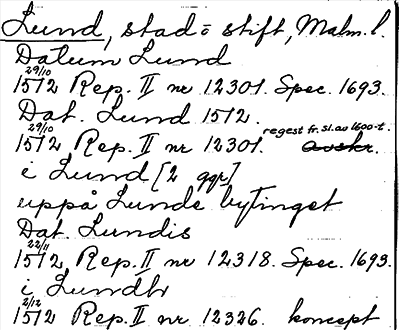 Lund, stad o stift, Malm. l.
Datum Lund
29/10
1512 Rep. II nr 12301. Spec. 1693.
Dat. Lund 1512.
29/10 regest fr. sl. av 1600-t.
1512 Rep. II nr 12301. Avskr.
i Lund [2 ggr]
uppå Lunde bytinget
Dat. Lundis
22/11
1512 Rep. II nr 12318. Spec. 1693.
i Lundh
2/12
1512 Rep. II nr 12326. koncept